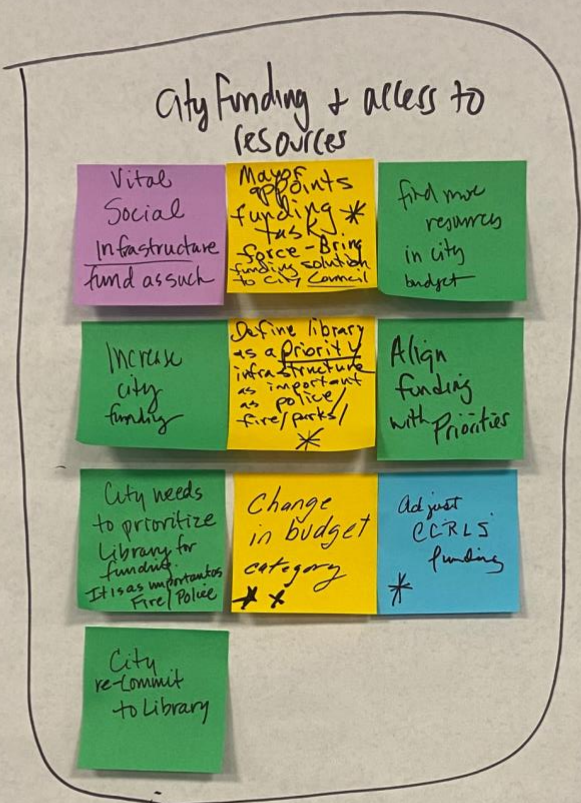 City Funding + access to
resources
Vital
Social
Infrastructure
fund as such
Mayor
appoints
funding *
task
force - Bring
funding solution
to City Council
find more
resources
in city
budget
Increase
city
funding
Define library
as a Priority
infrastructure
as important
as police/
fire/parks/
*
Align
funding
with Priorities
City needs
to prioritize
Library for
funding.
It is as important as
Fire/Police
Change
in budget
category
* x
Adjust
CCRLS
funding
*
City
re-commit
to Library